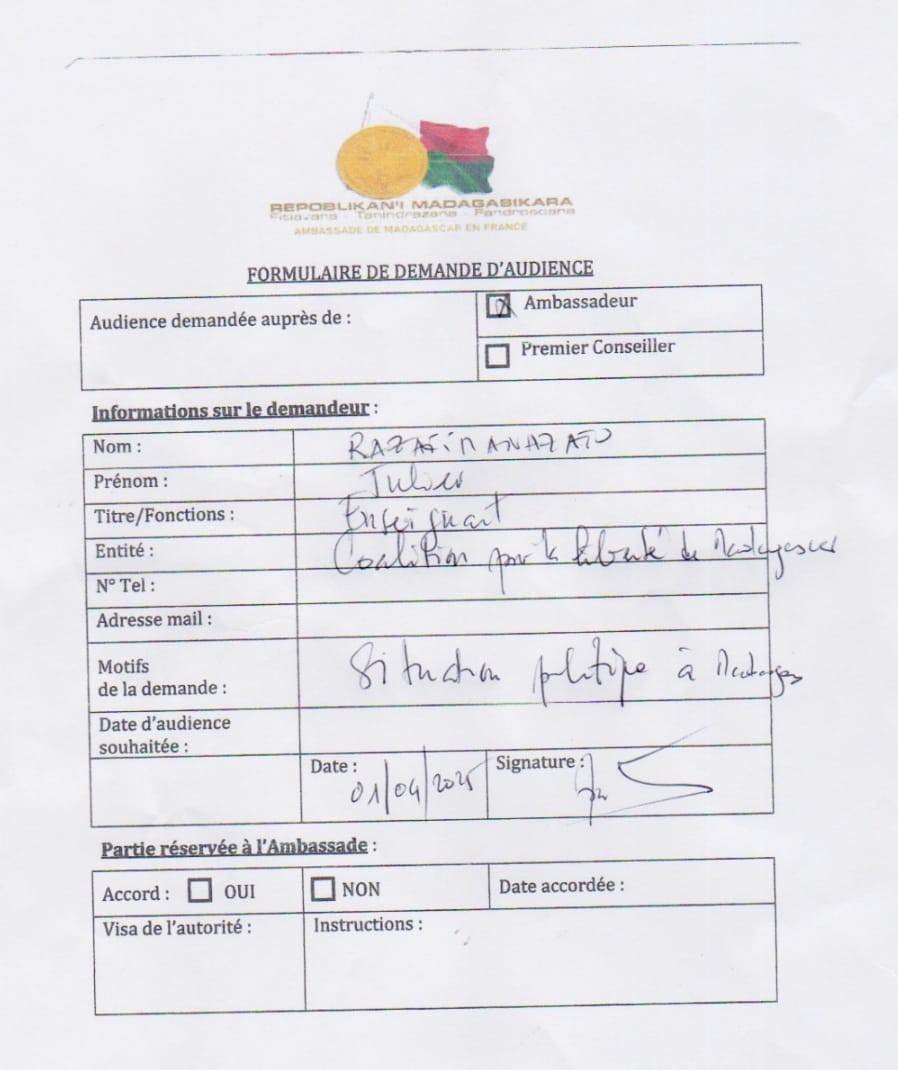 REPOBLIKAN'I MADAGASIKARA
Fitiavana - Tanindrazana - Fandrosoana
AMBASSADE DE MADAGASCAR EN FRANCE
FORMULAIRE DE DEMANDE D'AUDIENCE
Audience demandée auprès de :
Ambassadeur
Premier Conseiller
Informations sur le demandeur :
Nom : RAZAFIMANAZATO
Prénom :
Titre/Fonctions : Enseignant
Entité : Coalition pour la liberté de Madagascar
N° Tel :
Adresse mail :
Motifs
de la demande : Situation politique à Madagascar
Date d'audience
souhaitée :
Date : 01/04/2025
Signature :
Partie réservée à l'Ambassade :
Accord : OUI NON Date accordée :
Visa de l'autorité : Instructions :